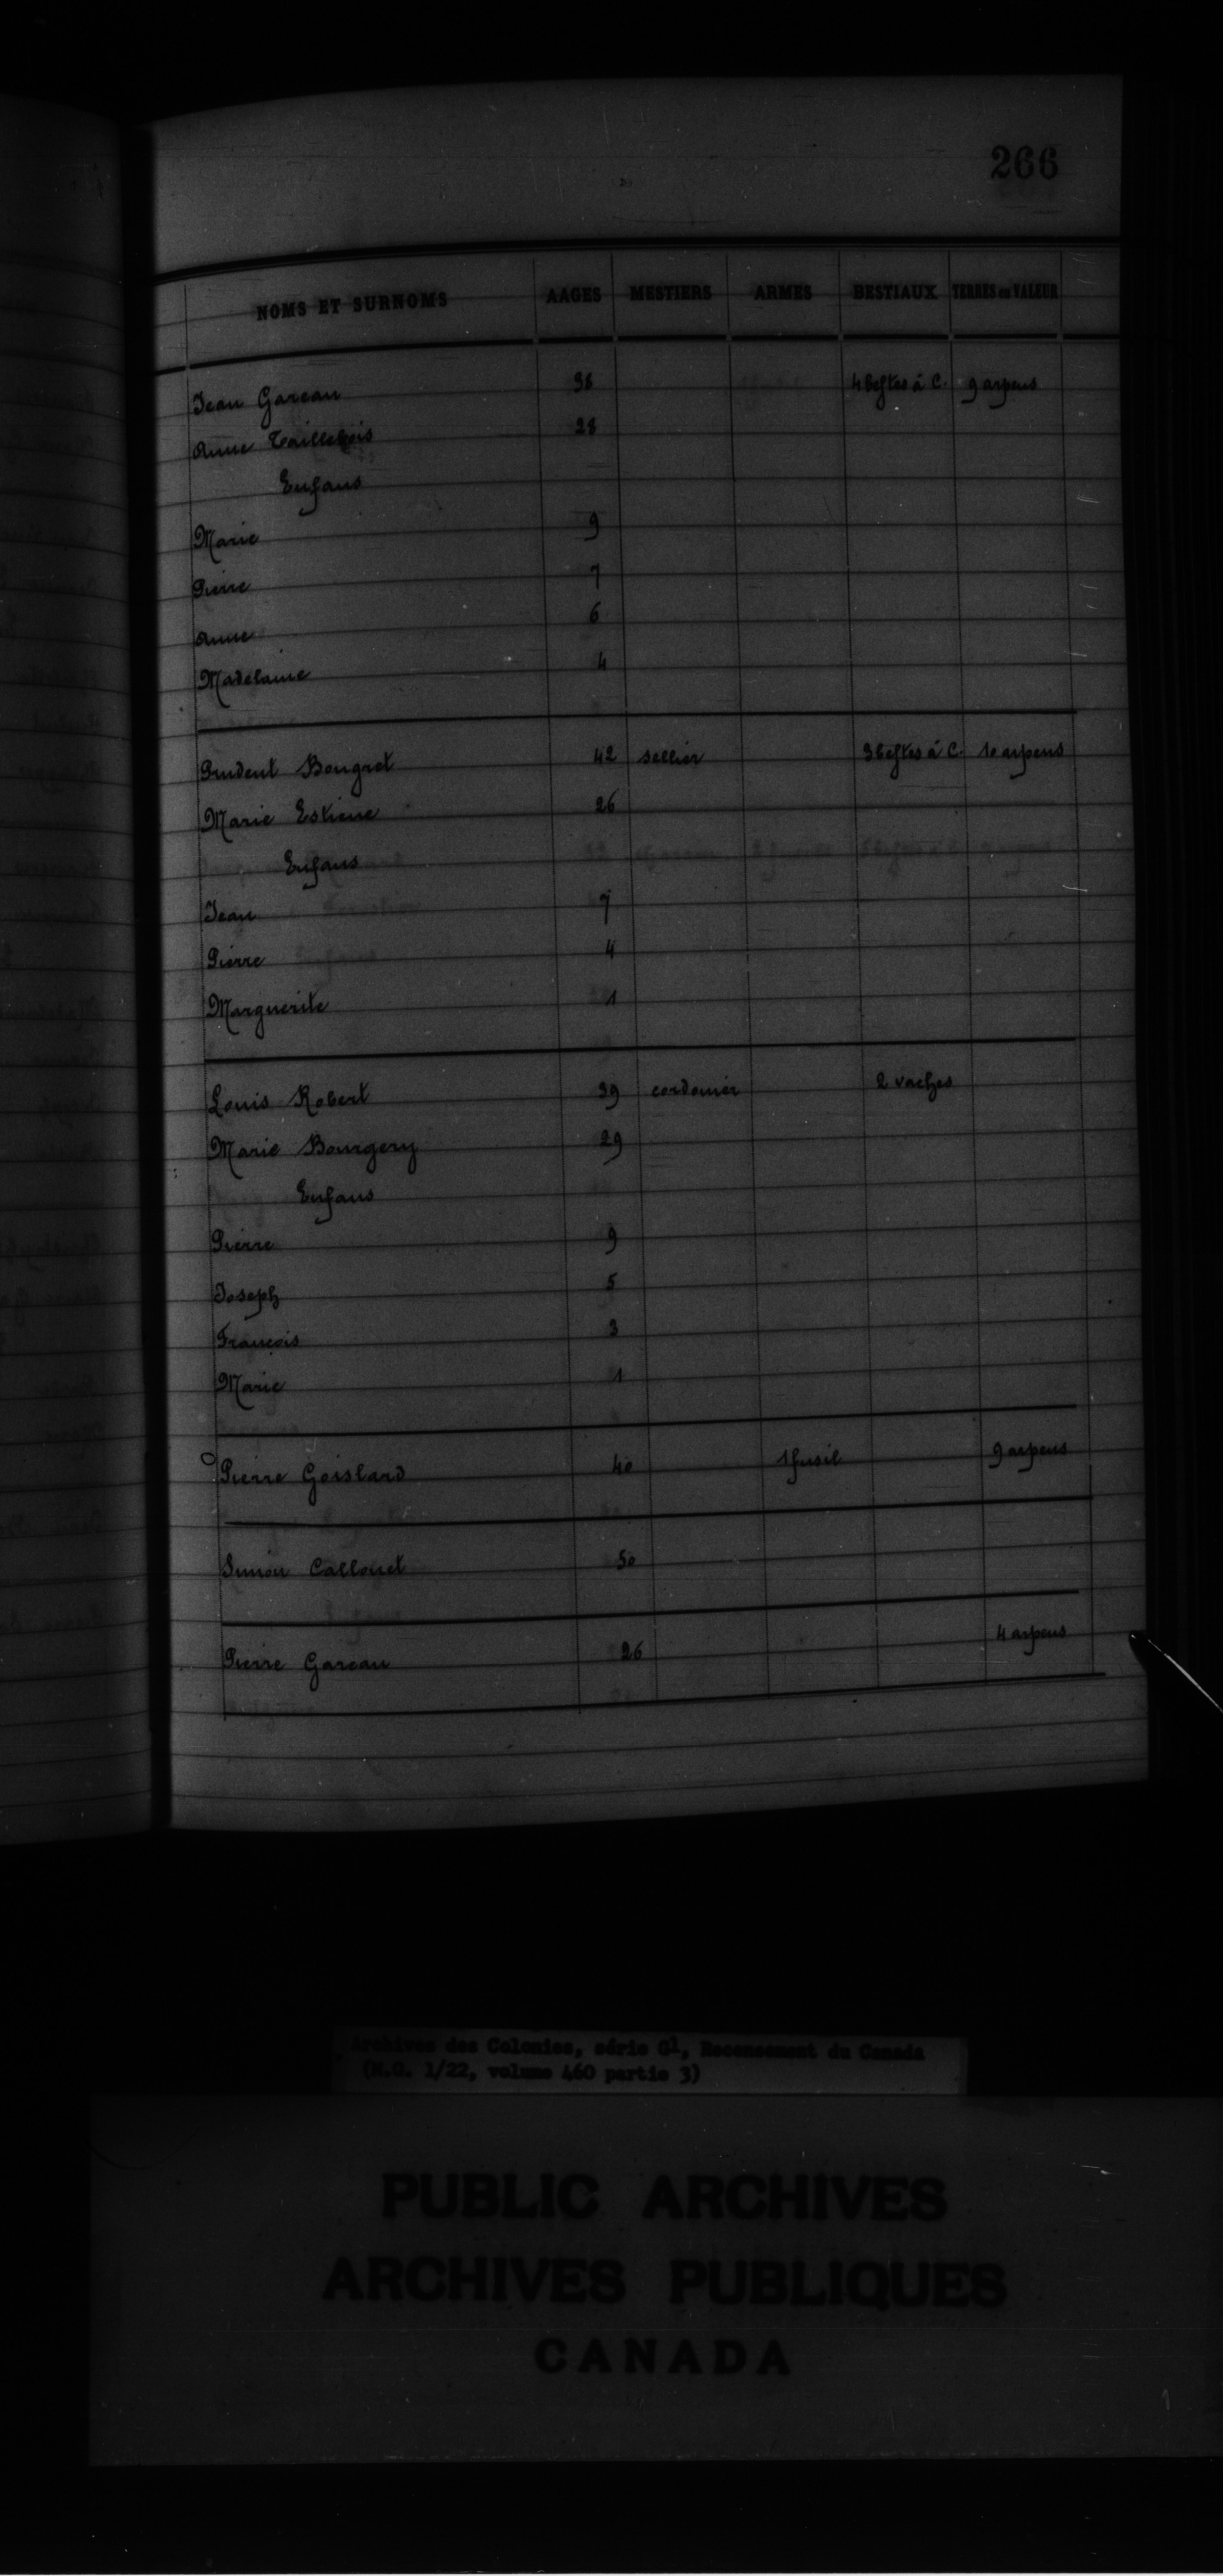 266
NOMS ET SURNOMS AAGES MESTIERS ARMES BESTIAUX TERRES en VALEUR
Jean Gareau 38 4 bestes à C. 9 arpens
Anne Taillebois 28
Enfans
Marie 9
Pierre 7
Anne 6
Madelaine 4
Prudent Bougret 42 sellier 3 bestes à C. 10 arpens
Marie Estiene 26
Enfans
Jean 7
Pierre 4
Marguerite 1
Louis Robert 39 cordonier 2 vaches
Marie Bourgery 29
Enfans
Pierre 9
Joseph 5
François 3
Marie 1
Pierre Goislard 40 1 fusil 9 arpens
Simon Callouet 50
Pierre Gareau 26 4 arpens
Archives des Colonies, série G1, Recensement du Canada
(M.G. 1/22, volume 460 partie 3)
PUBLIC ARCHIVES
ARCHIVES PUBLIQUES
CANADA